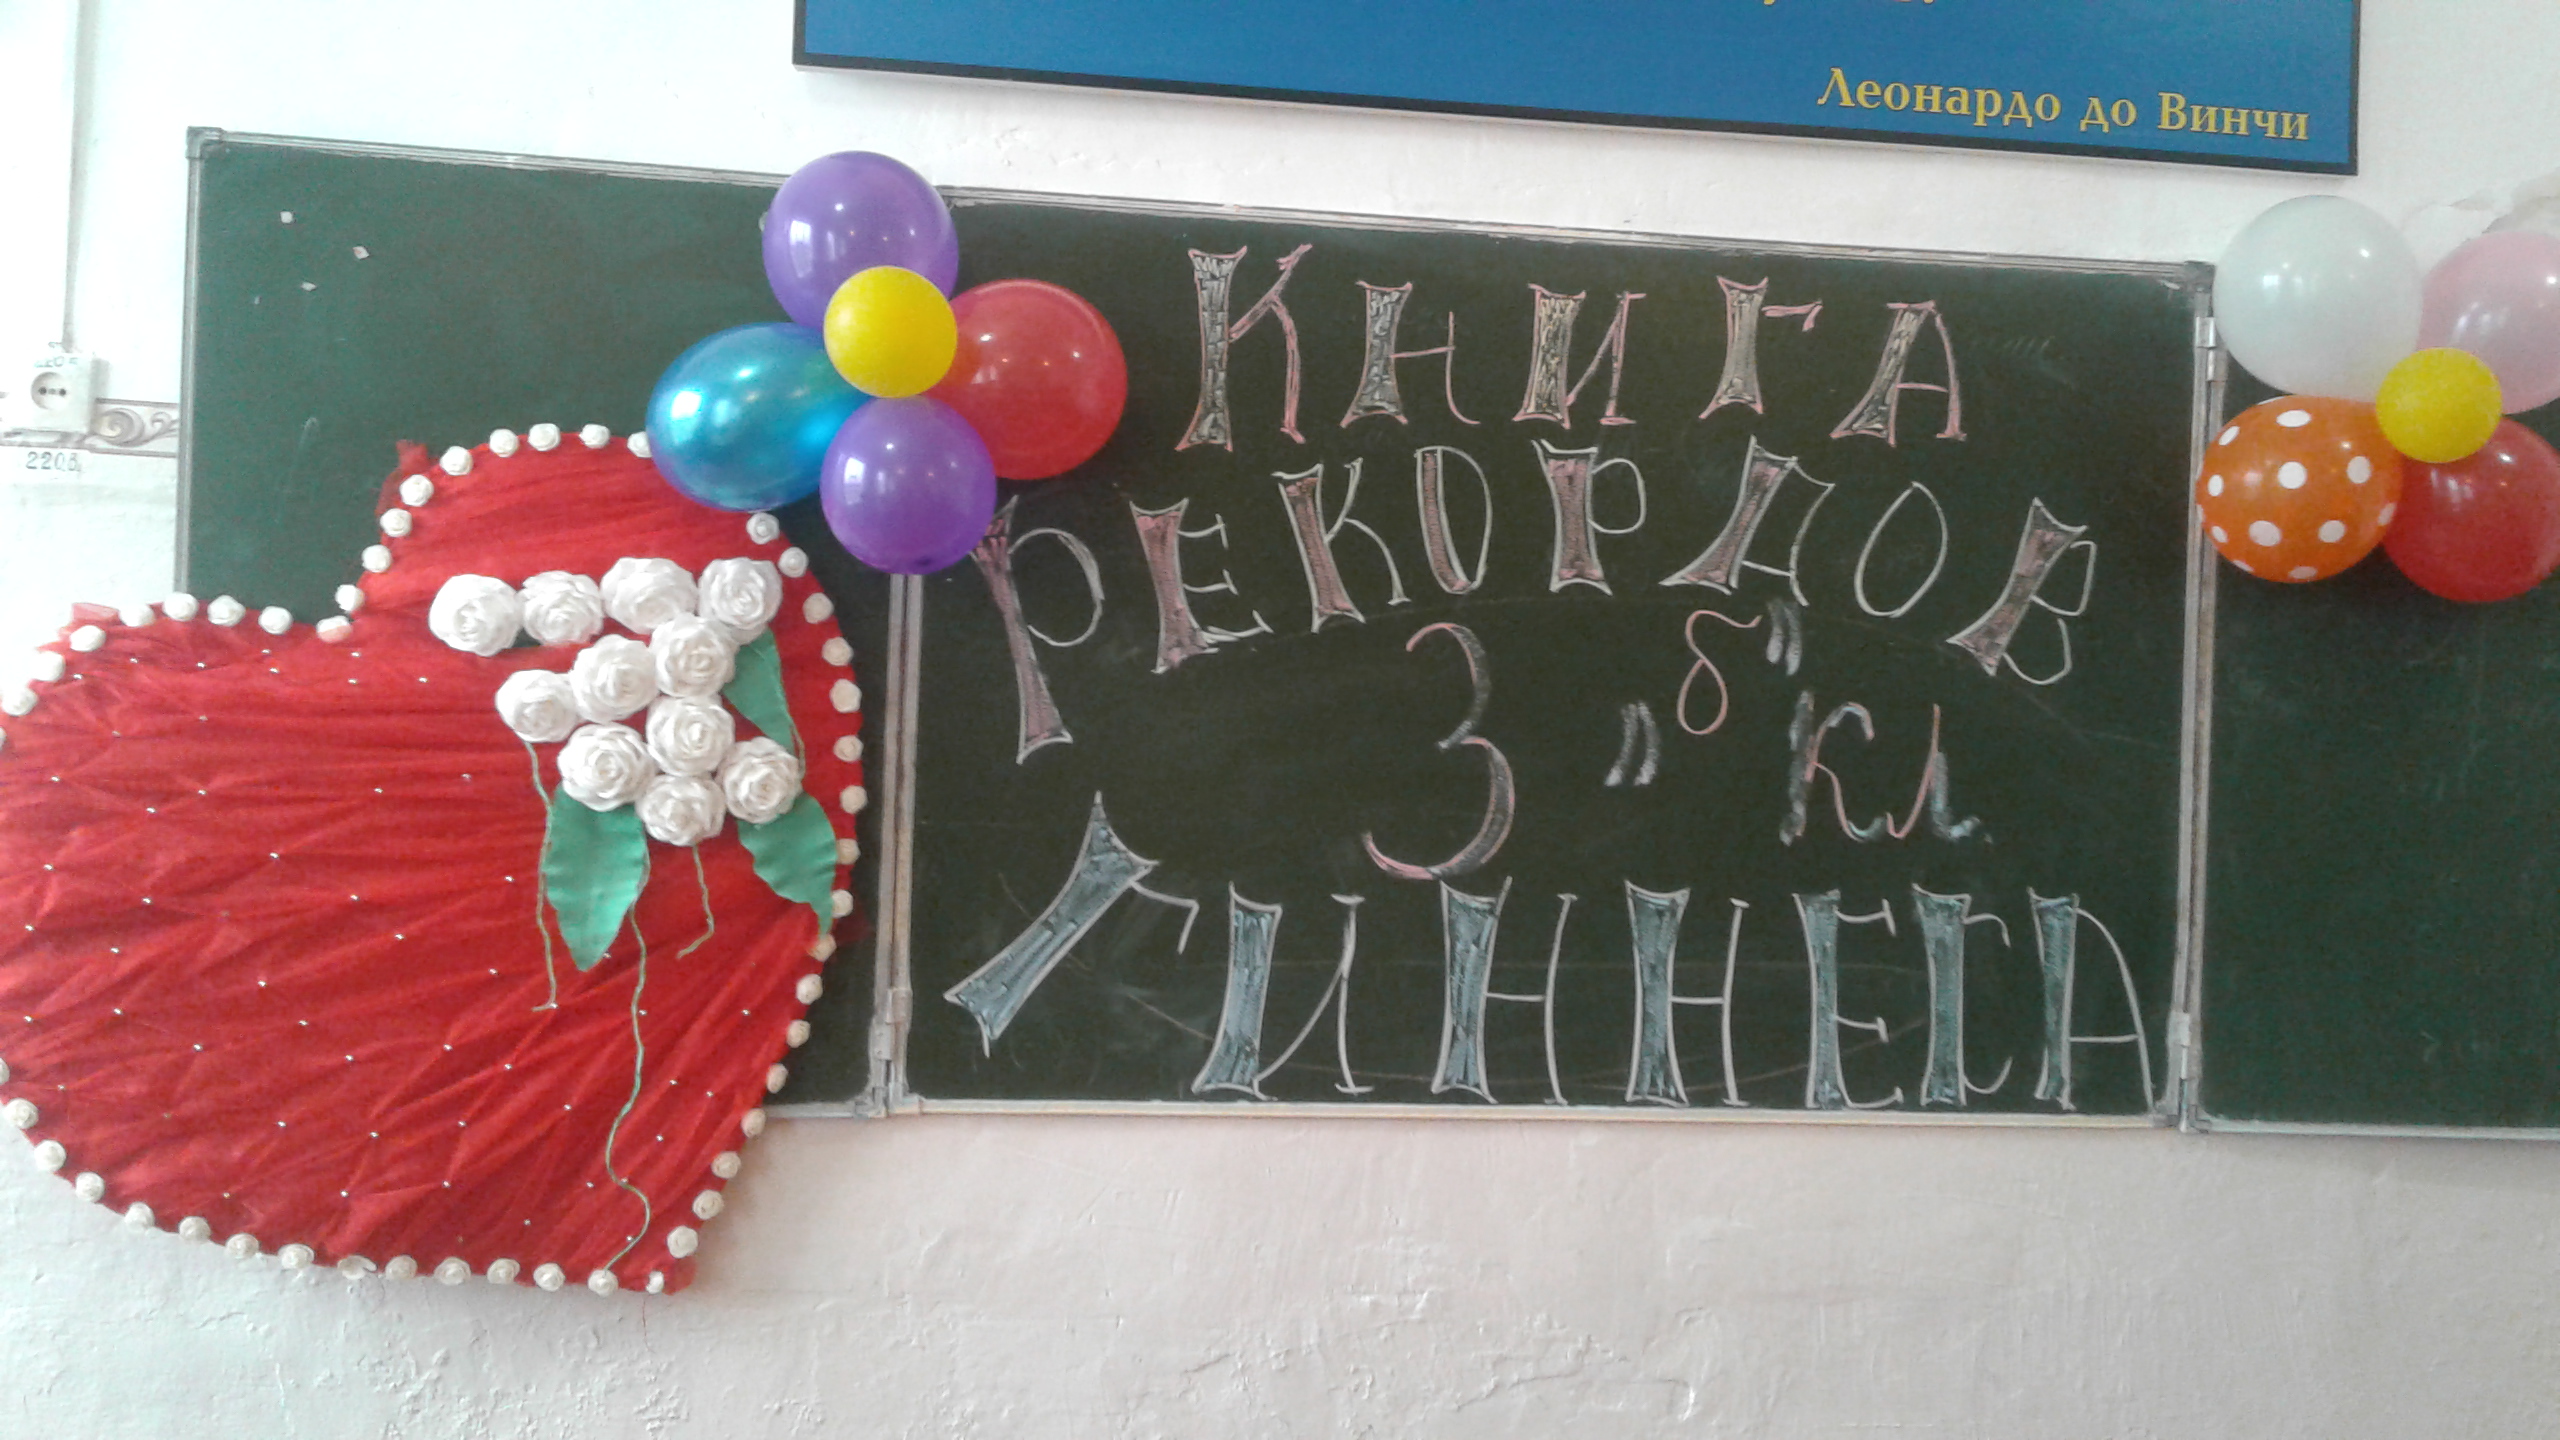 Леонардо до Винчи
Книга
рекордов
3 „б” кл
Гиннеса
220в.